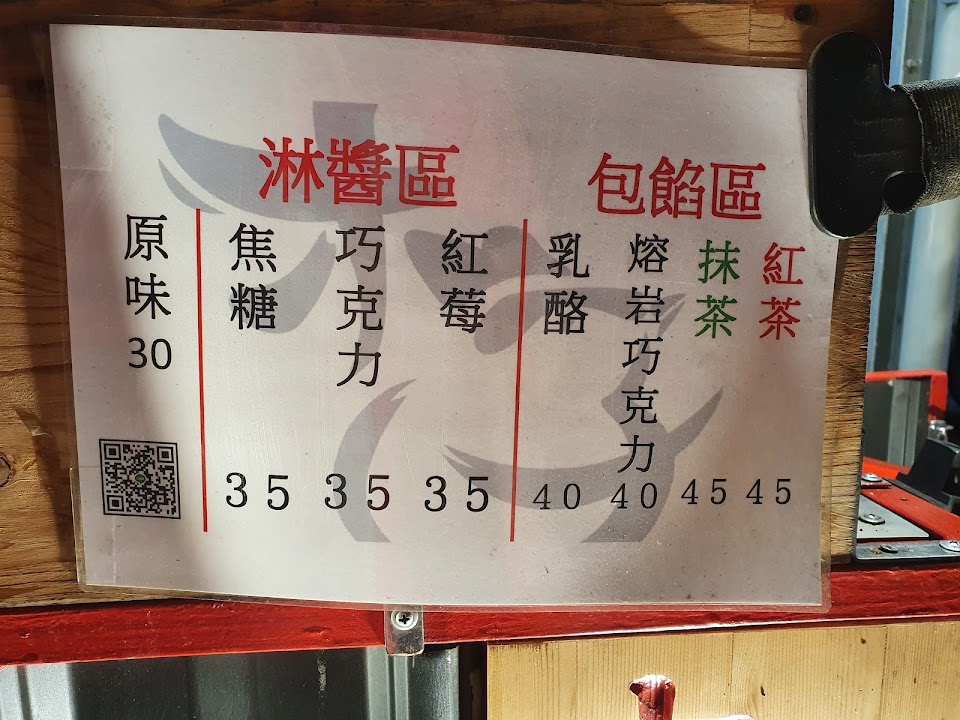 原味 30
淋醬區
焦糖 35
巧克力 35
紅莓 35
包餡區
乳酪 40
熔岩巧克力 40
抹茶 45
紅茶 45